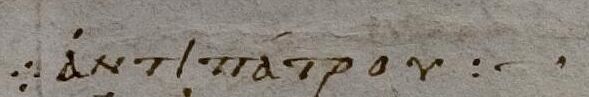 ⁘ ἀντιπάτρου :~